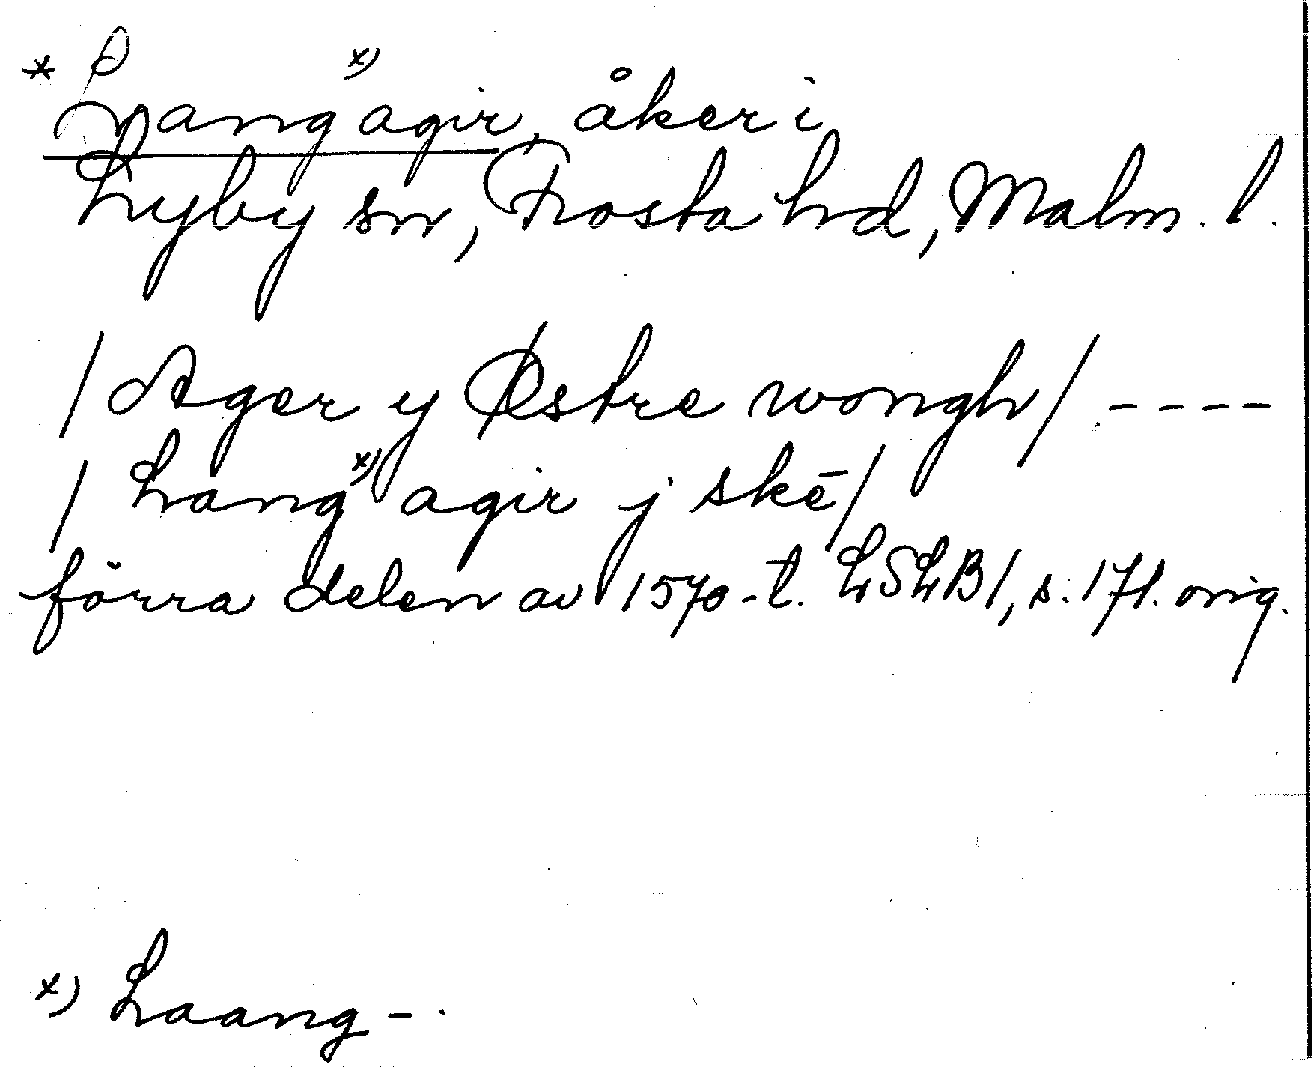 * Lang ˣ⁾ agir, åker i
Lyby sn, Frosta hd, Malm. l.
/ Ager y Østre wongh / ----
/ Lang ˣ⁾ agir j skē /
förra delen av 1570-t. LSLB 1, s. 171. orig.
x) Laang-.